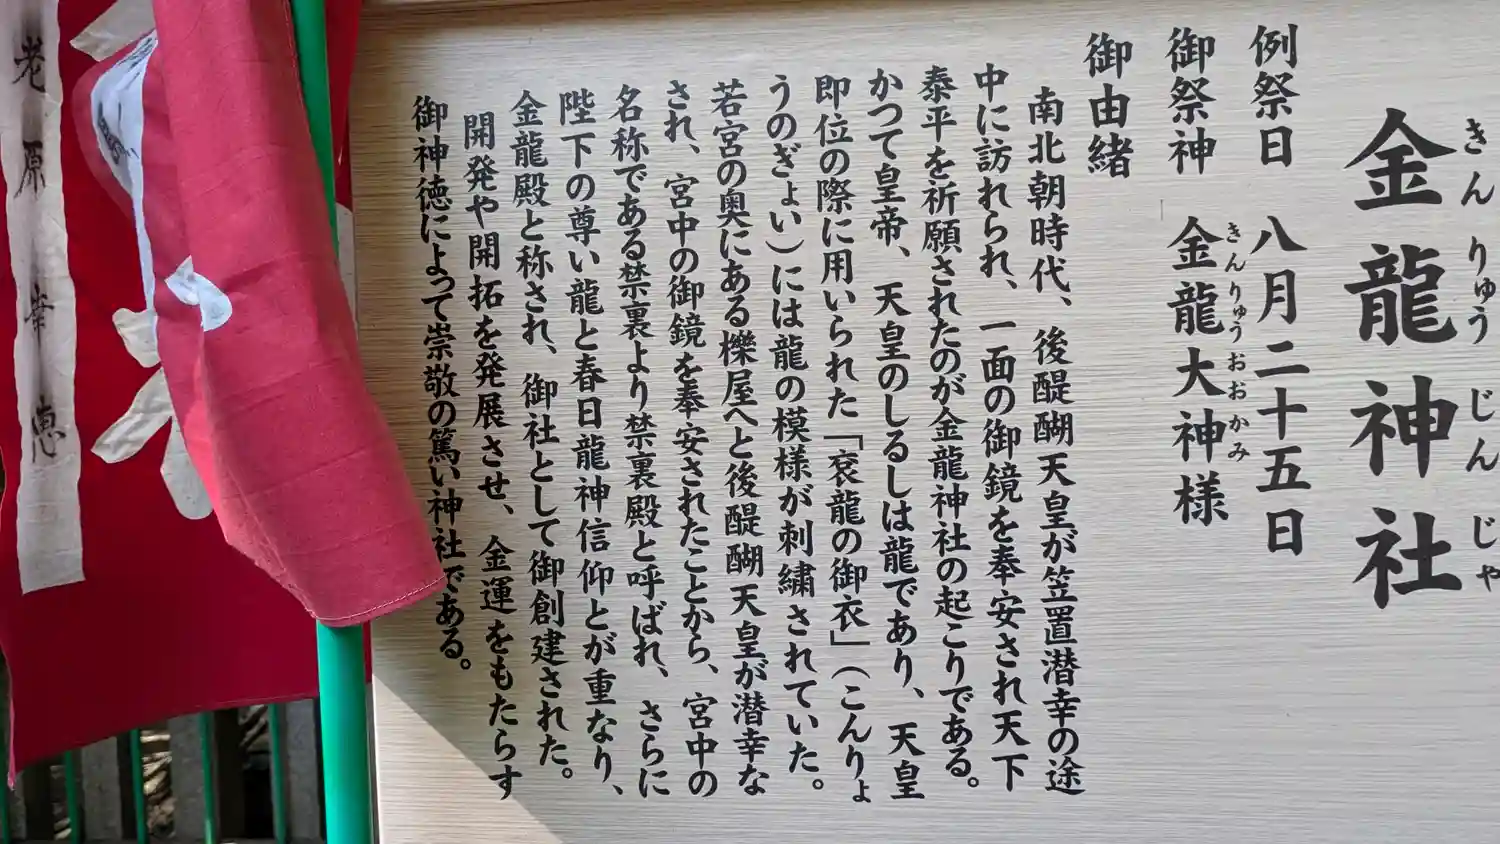 金龍神社
きんりゅうじんじゃ
例祭日　八月二十五日
御祭神　金龍大神様
きんりゅうおおかみ
御由緒
南北朝時代、後醍醐天皇が笠置潜幸の途
中に訪れられ、一面の御鏡を奉安され天下
泰平を祈願されたのが金龍神社の起こりである。
かつて皇帝、天皇のしるしは龍であり、天皇
即位の際に用いられた「袞龍の御衣」（こんりょ
うのぎょい）には龍の模様が刺繍されていた。
若宮の奥にある櫟屋へと後醍醐天皇が潜幸な
され、宮中の御鏡を奉安されたことから、宮中の
名称である禁裏より禁裏殿と呼ばれ、さらに
陛下の尊い龍と春日龍神信仰とが重なり、
金龍殿と称され、御社として御創建された。
開発や開拓を発展させ、金運をもたらす
御神徳によって崇敬の篤い神社である。
老原幸恵